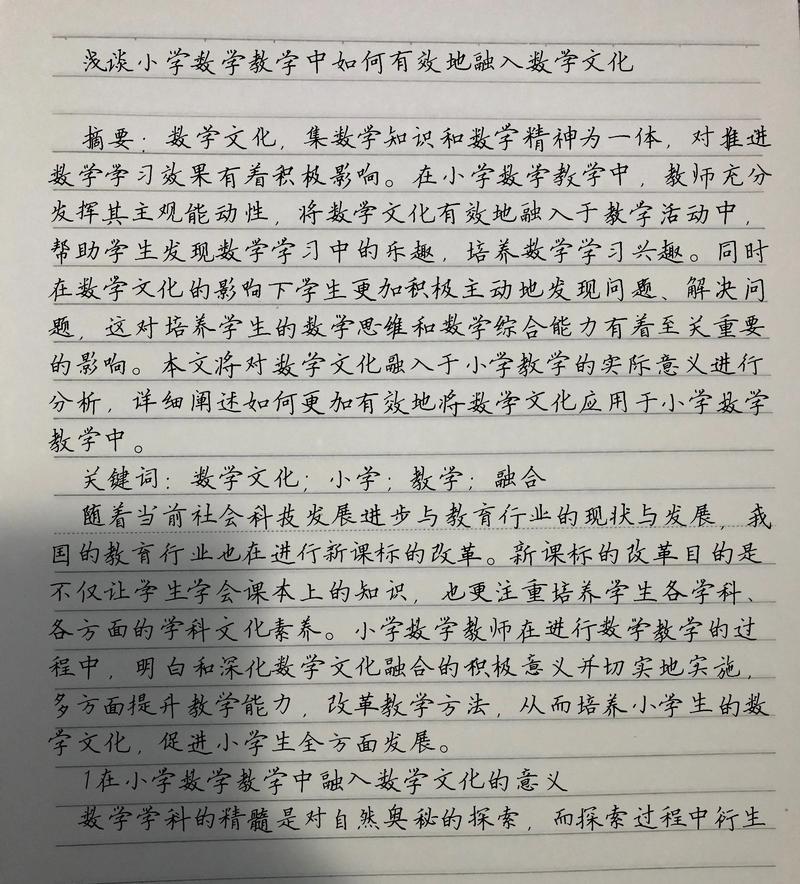 浅谈小学数学教学中如何有效地融入数学文化
摘要：数学文化，集数学知识和数学精神为一体，对推进
数学学习效果有着积极影响。在小学数学教学中，教师充分
发挥其主观能动性，将数学文化有效地融入于教学活动中，
帮助学生发现数学学习中的乐趣，培养数学学习兴趣。同时
在数学文化的影响下学生更加积极主动地发现问题、解决问
题，这对培养学生的数学思维和数学综合能力有着至关重要
的影响。本文将对数学文化融入于小学教学的实际意义进行
分析，详细阐述如何更加有效地将数学文化应用于小学数学
教学中。
关键词：数学文化；小学；教学；融合
随着当前社会科技发展进步与教育行业的现状与发展，我
国的教育行业也在进行新课标的改革。新课标的改革目的是
不仅让学生学会课本上的知识，也更注重培养学生各学科、
各方面的学科文化素养。小学数学教师在进行数学教学的过
程中，明白和深化数学文化融合的积极意义并切实地实施，
多方面提升教学能力，改革教学方法，从而培养小学生的数
学文化，促进小学生全方面发展。
1在小学数学教学中融入数学文化的意义
数学学科的精髓是对自然奥秘的探索，而探索过程中衍生